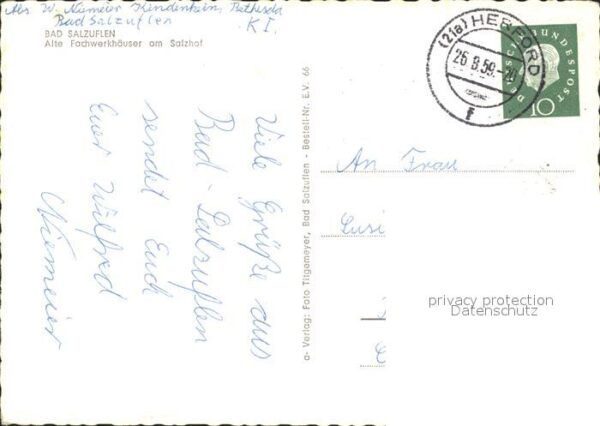 Abs W. Niemeier Kinderheim Bethesda
Bad Salzuflen K I.
BAD SALZUFLEN
Alte Fachwerkhäuser am Salzhof
Viele Grüße aus
Bad-Salzuflen
sendet Euch
Euer Wilfred
Niemeier
a- Verlag: Foto Tilgemeyer, Bad Salzuflen - Bestell-Nr. E.V. 66
(21a) HERFORD
26.8.59.-20
f
DEUTSCHE BUNDESPOST
10
An Frau
Lusi
privacy protection
Datenschutz